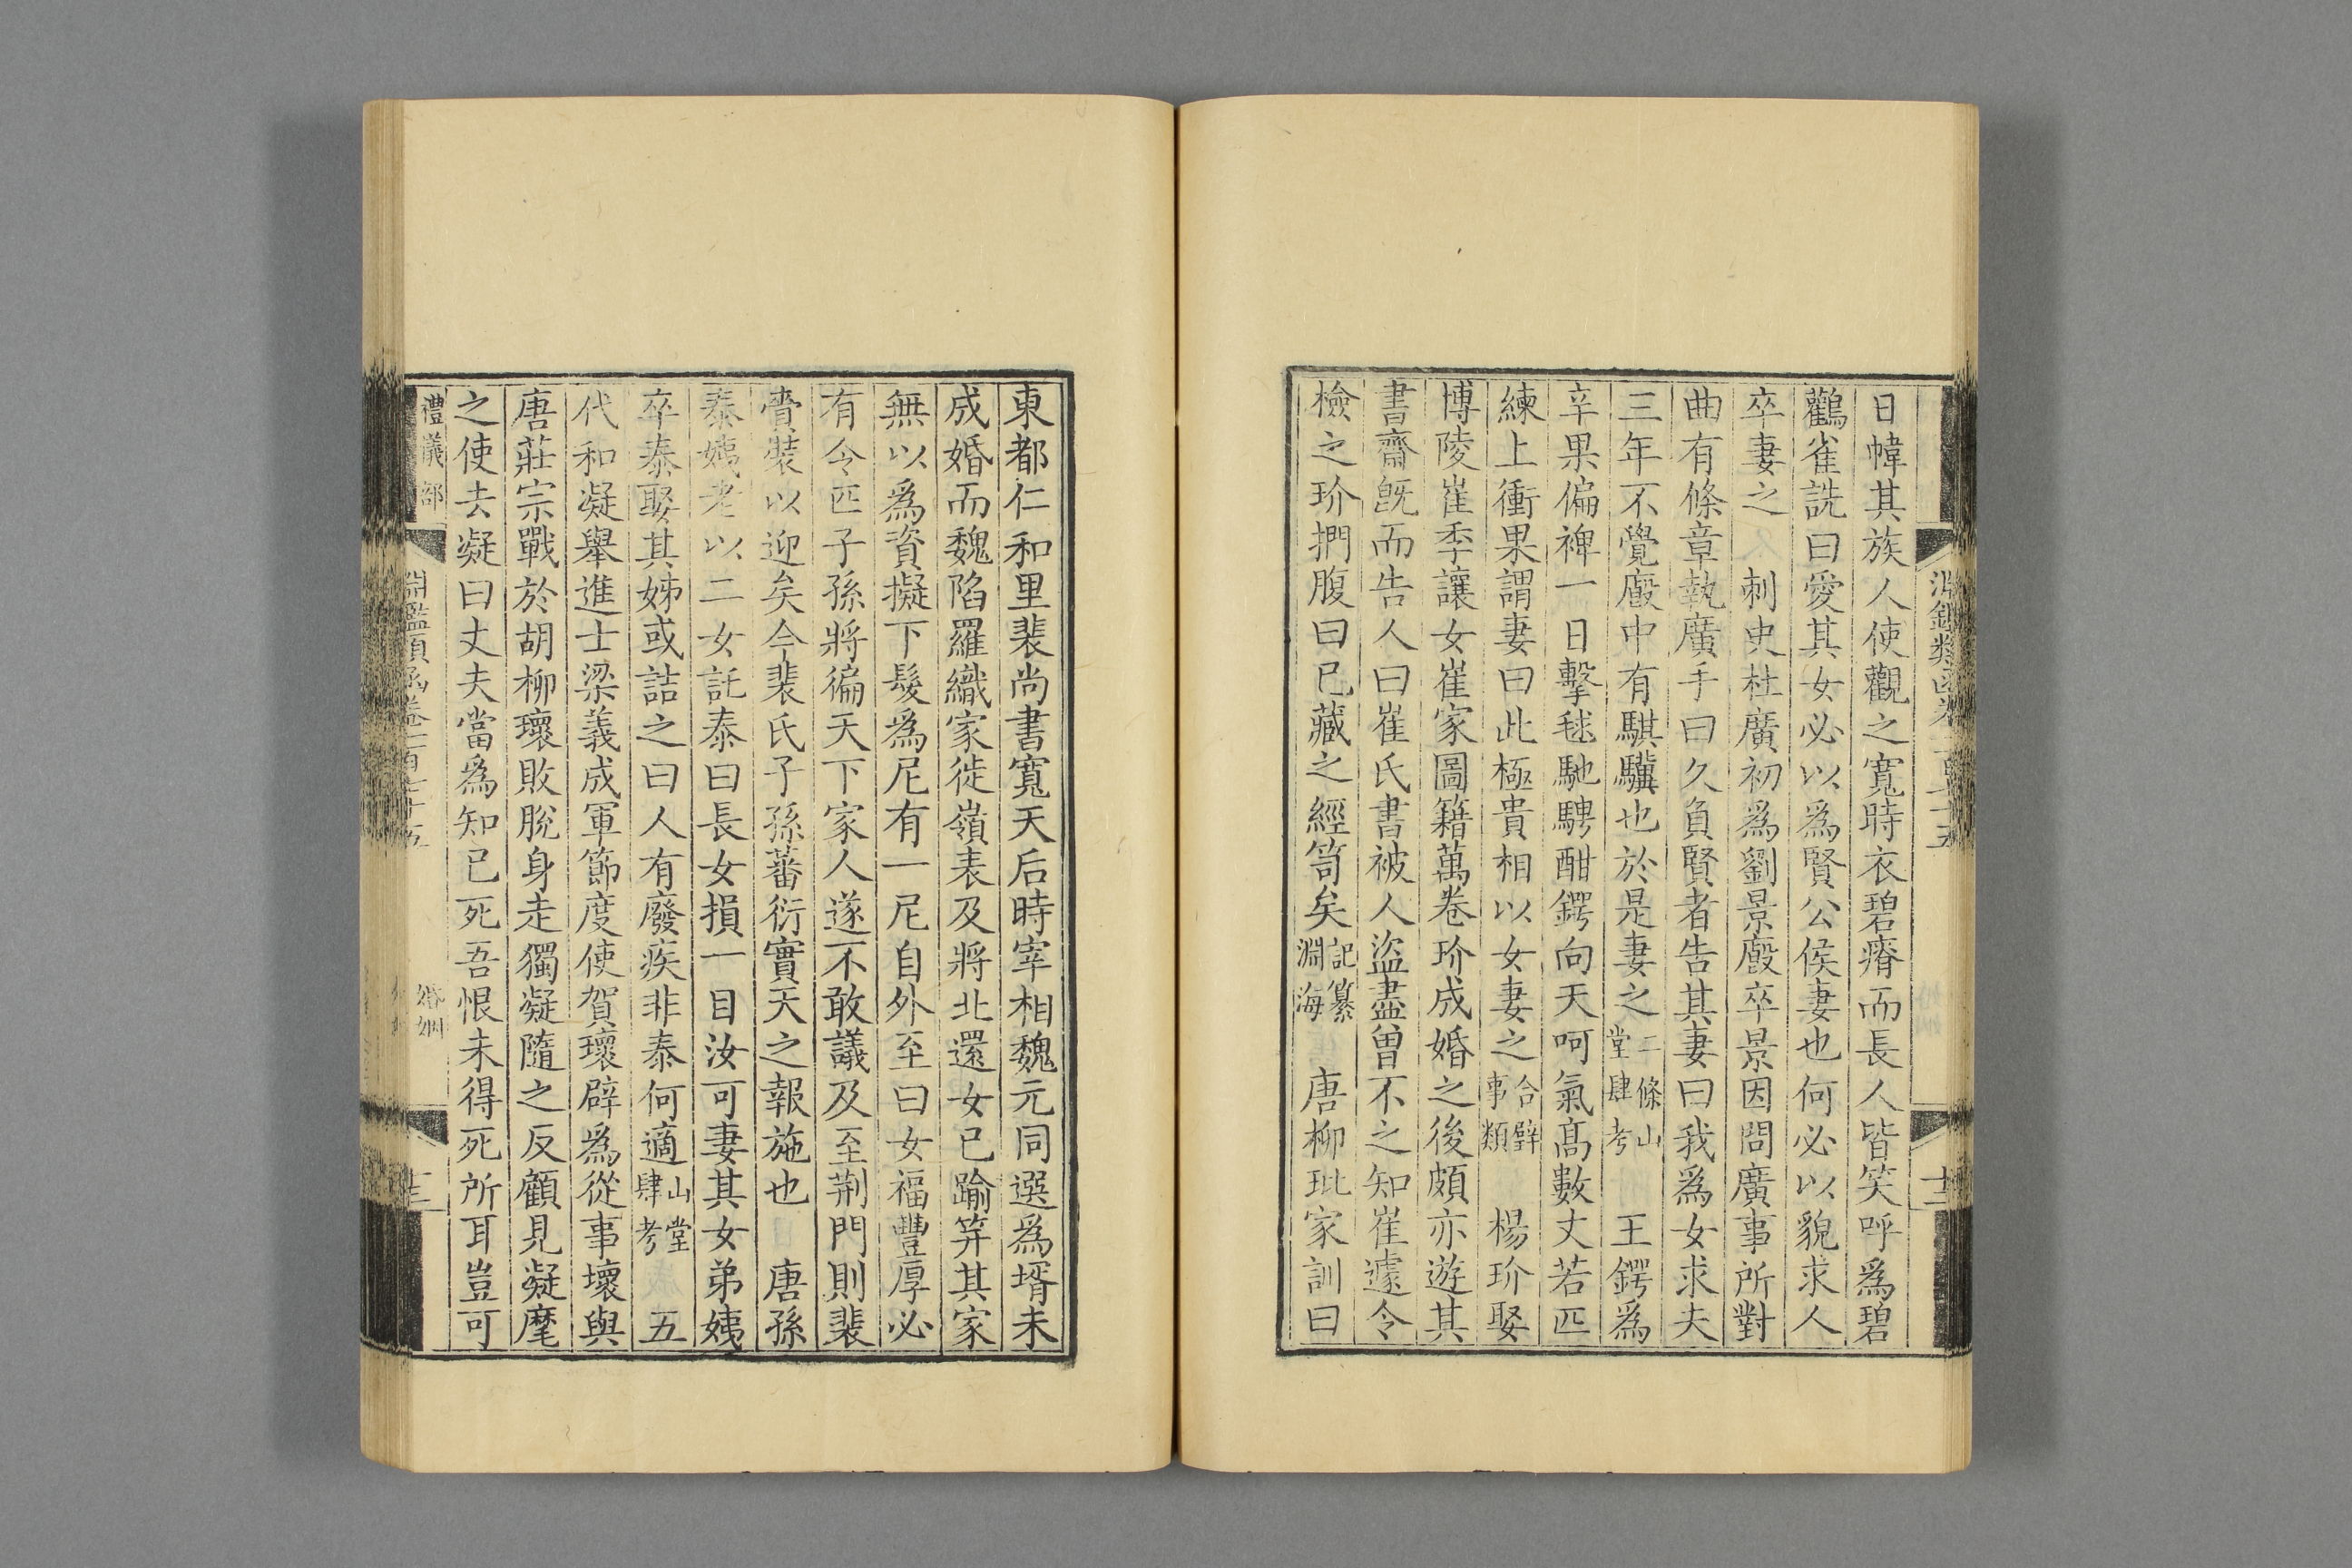 日幃其族人使觀之寬時衣碧瘠而長人皆笑呼爲碧
鸛雀詵曰愛其女必以爲賢公侯妻也何必以貌求人
卒妻之 刺史杜廣初爲劉景廄卒景因問廣事所對
曲有條章執廣手曰久負賢者告其妻曰我爲女求夫
三年不覺廄中有騏驥也於是妻之二條山堂肆考 王鍔爲
辛杲偏裨一日擊毬馳騁酣鍔向天呵氣高數丈若匹
練上衝杲謂妻曰此極貴相以女妻之合璧事類 楊玠娶
博陵崔季讓女崔家圖籍萬卷玠成婚之後頗亦遊其
書齋旣而告人曰崔氏書被人盜盡曾不之知崔遽令
檢之玠捫腹曰已藏之經笥矣記纂淵海 唐柳玭家訓曰
東都仁和里裴尚書寬天后時宰相魏元同選爲壻未
成婚而魏陷羅織家徙嶺表及將北還女已踰笄其家
無以爲資擬下髮爲尼有一尼自外至曰女福豐厚必
有令匹子孫將徧天下家人遂不敢議及至荆門則裴
賫裝以迎矣今裴氏子孫蕃衍實天之報施也 唐孫
泰姨老以二女託泰曰長女損一目汝可妻其女弟姨
卒泰娶其姊或詰之曰人有廢疾非泰何適山堂肆考 五
代和凝舉進士梁義成軍節度使賀瓌辟爲從事瓌與
唐莊宗戰於胡柳瓌敗脫身走獨凝隨之反顧見凝麾
之使去凝曰丈夫當爲知已死吾恨未得死所耳豈可
禮儀部 淵鑑類函卷一百七十五 婚姻 十二